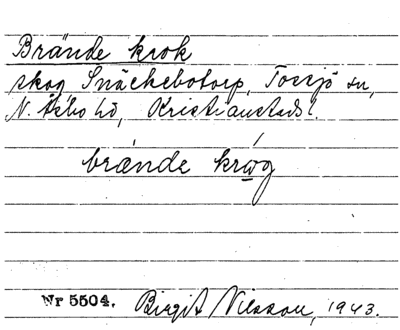 Brände krok
skog, Snäckebotorp, Tossjö sn,
N. Åsbo hd, Kristianstads l.
brände krǫ́g
Nr 5504. Birgit Nilsson, 1943.